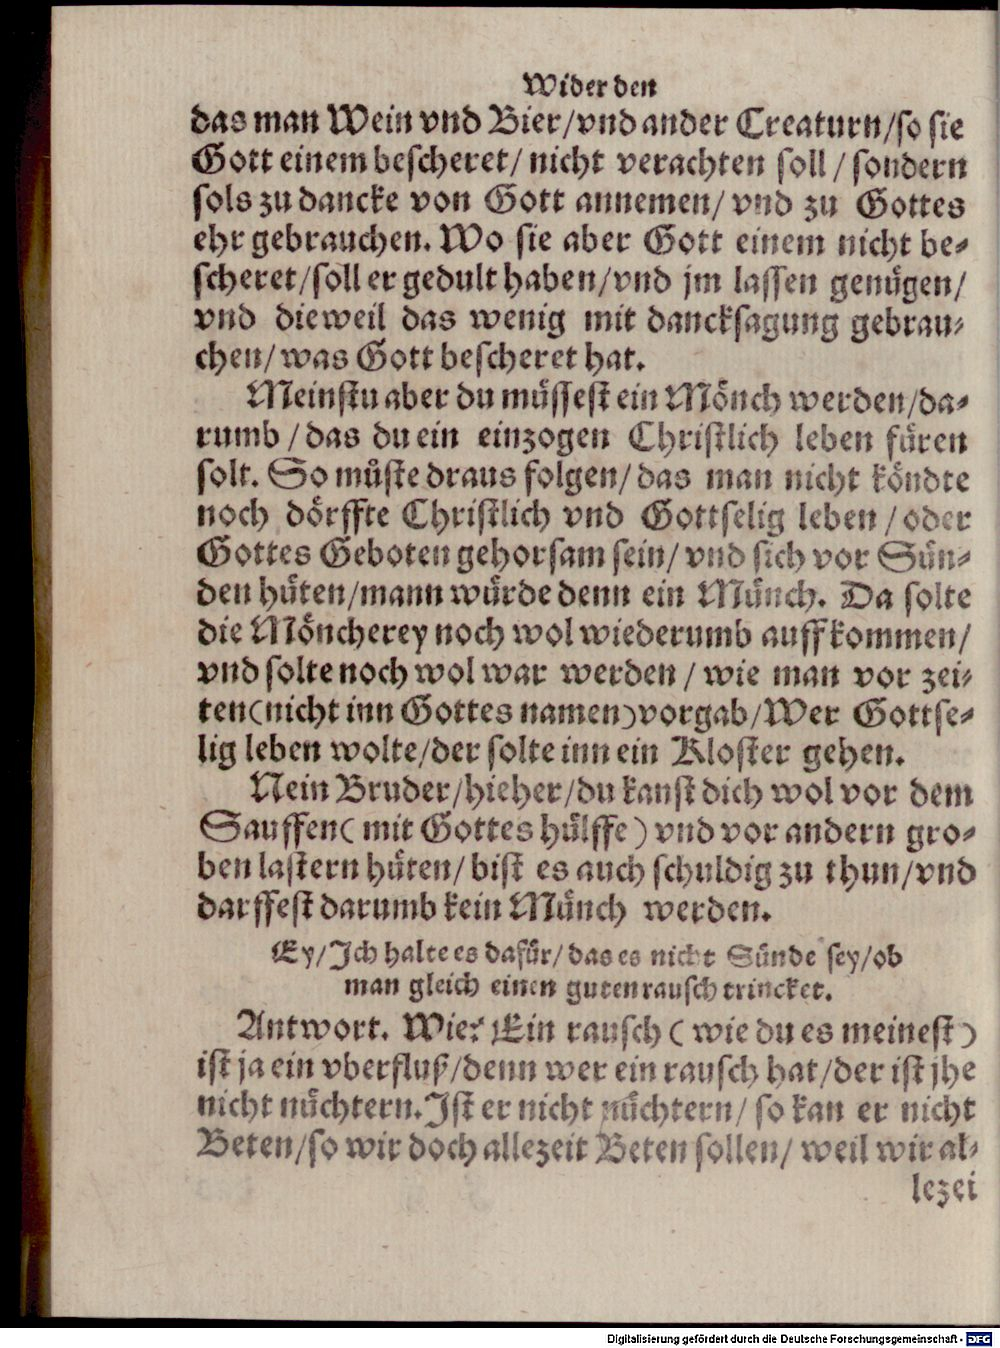 Wider den
das man Wein vnd Bier/vnd ander Creaturn/so sie
Gott einem bescheret/ nicht verachten soll / sondern
sols zu dancke von Gott annemen/ vnd zu Gottes
ehr gebrauchen. Wo sie aber Gott einem nicht be-
scheret/soll er gedult haben/vnd jm lassen genügen/
vnd dieweil das wenig mit dancksagung gebrau-
chen/ was Gott bescheret hat.
Meinstu aber du müssest ein Mönch werden/da-
rumb / das du ein einzogen Christlich leben füren
solt. So müste draus folgen/ das man nicht köndte
noch dörffte Christlich vnd Gottselig leben / oder
Gottes Geboten gehorsam sein/ vnd sich vor Sün-
den hüten/mann würde denn ein Münch. Da solte
die Möncherey noch wol wiederumb auffkommen/
vnd solte noch wol war werden / wie man vor zei-
ten(nicht inn Gottes namen)vorgab/Wer Gottse-
lig leben wolte/der solte inn ein Kloster gehen.
Nein Bruder/hieher/du kanst dich wol vor dem
Sauffen( mit Gottes hülffe ) vnd vor andern gro-
ben lastern hüten/ bist es auch schuldig zu thun/vnd
darffest darumb kein Münch werden.
Ey/Jch halte es dafür/ das es nicht Sünde sey/ob
man gleich einen guten rausch trincket.
Antwort. Wie? Ein rausch ( wie du es meinest )
ist ja ein vberfluß/denn wer ein rausch hat/der ist jhe
nicht nüchtern. Jst er nicht nüchtern/ so kan er nicht
Beten/so wir doch allezeit Beten sollen/ weil wir al-
lezei
Digitalisierung gefördert durch die Deutsche Forschungsgemeinschaft - DFG